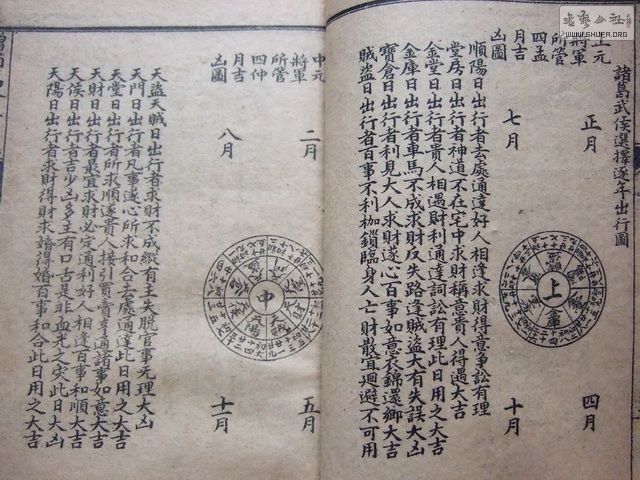 諸葛武侯選擇逐年出行圖
正元
將軍
所管
四孟
月吉
凶圖
正月
四月
七月
十月
上
倉
順陽日出行者去處通達好人相逢求財得意爭訟有理
堂房日出行者神道不在宅中求財稱意貴人得遇大吉
金堂日出行者貴人相遇財利通達詞訟有理此日用之大吉
金庫日出行者車馬不成求財反失路逢賊盜大有失誤大凶
寶倉日出行者利見大人求財遂心百事如意衣錦還鄉大吉
賊盜日出行者百事不利枷鎖臨身人亡財散宜迴避不可用
中元
將軍
所管
四仲
月吉
凶圖
二月
五月
八月
十一月
中
天盜天賊日出行者求財不成縱有主失脫官事无理大凶
天門日出行者凡事遂心所求和合去處通達此日用之大吉
天堂日出行者所求順遂貴人接引買賣亨通諸事如意大吉
天財日出行者最宜求財必定通利好人相逢百事和順大吉
天侯日出行者吉少凶多主有口舌是非血光之灾此日大凶
天陽日出行者求財得財求婚得婚百事和合此日用之大吉
WWW.SHUFA.ORG